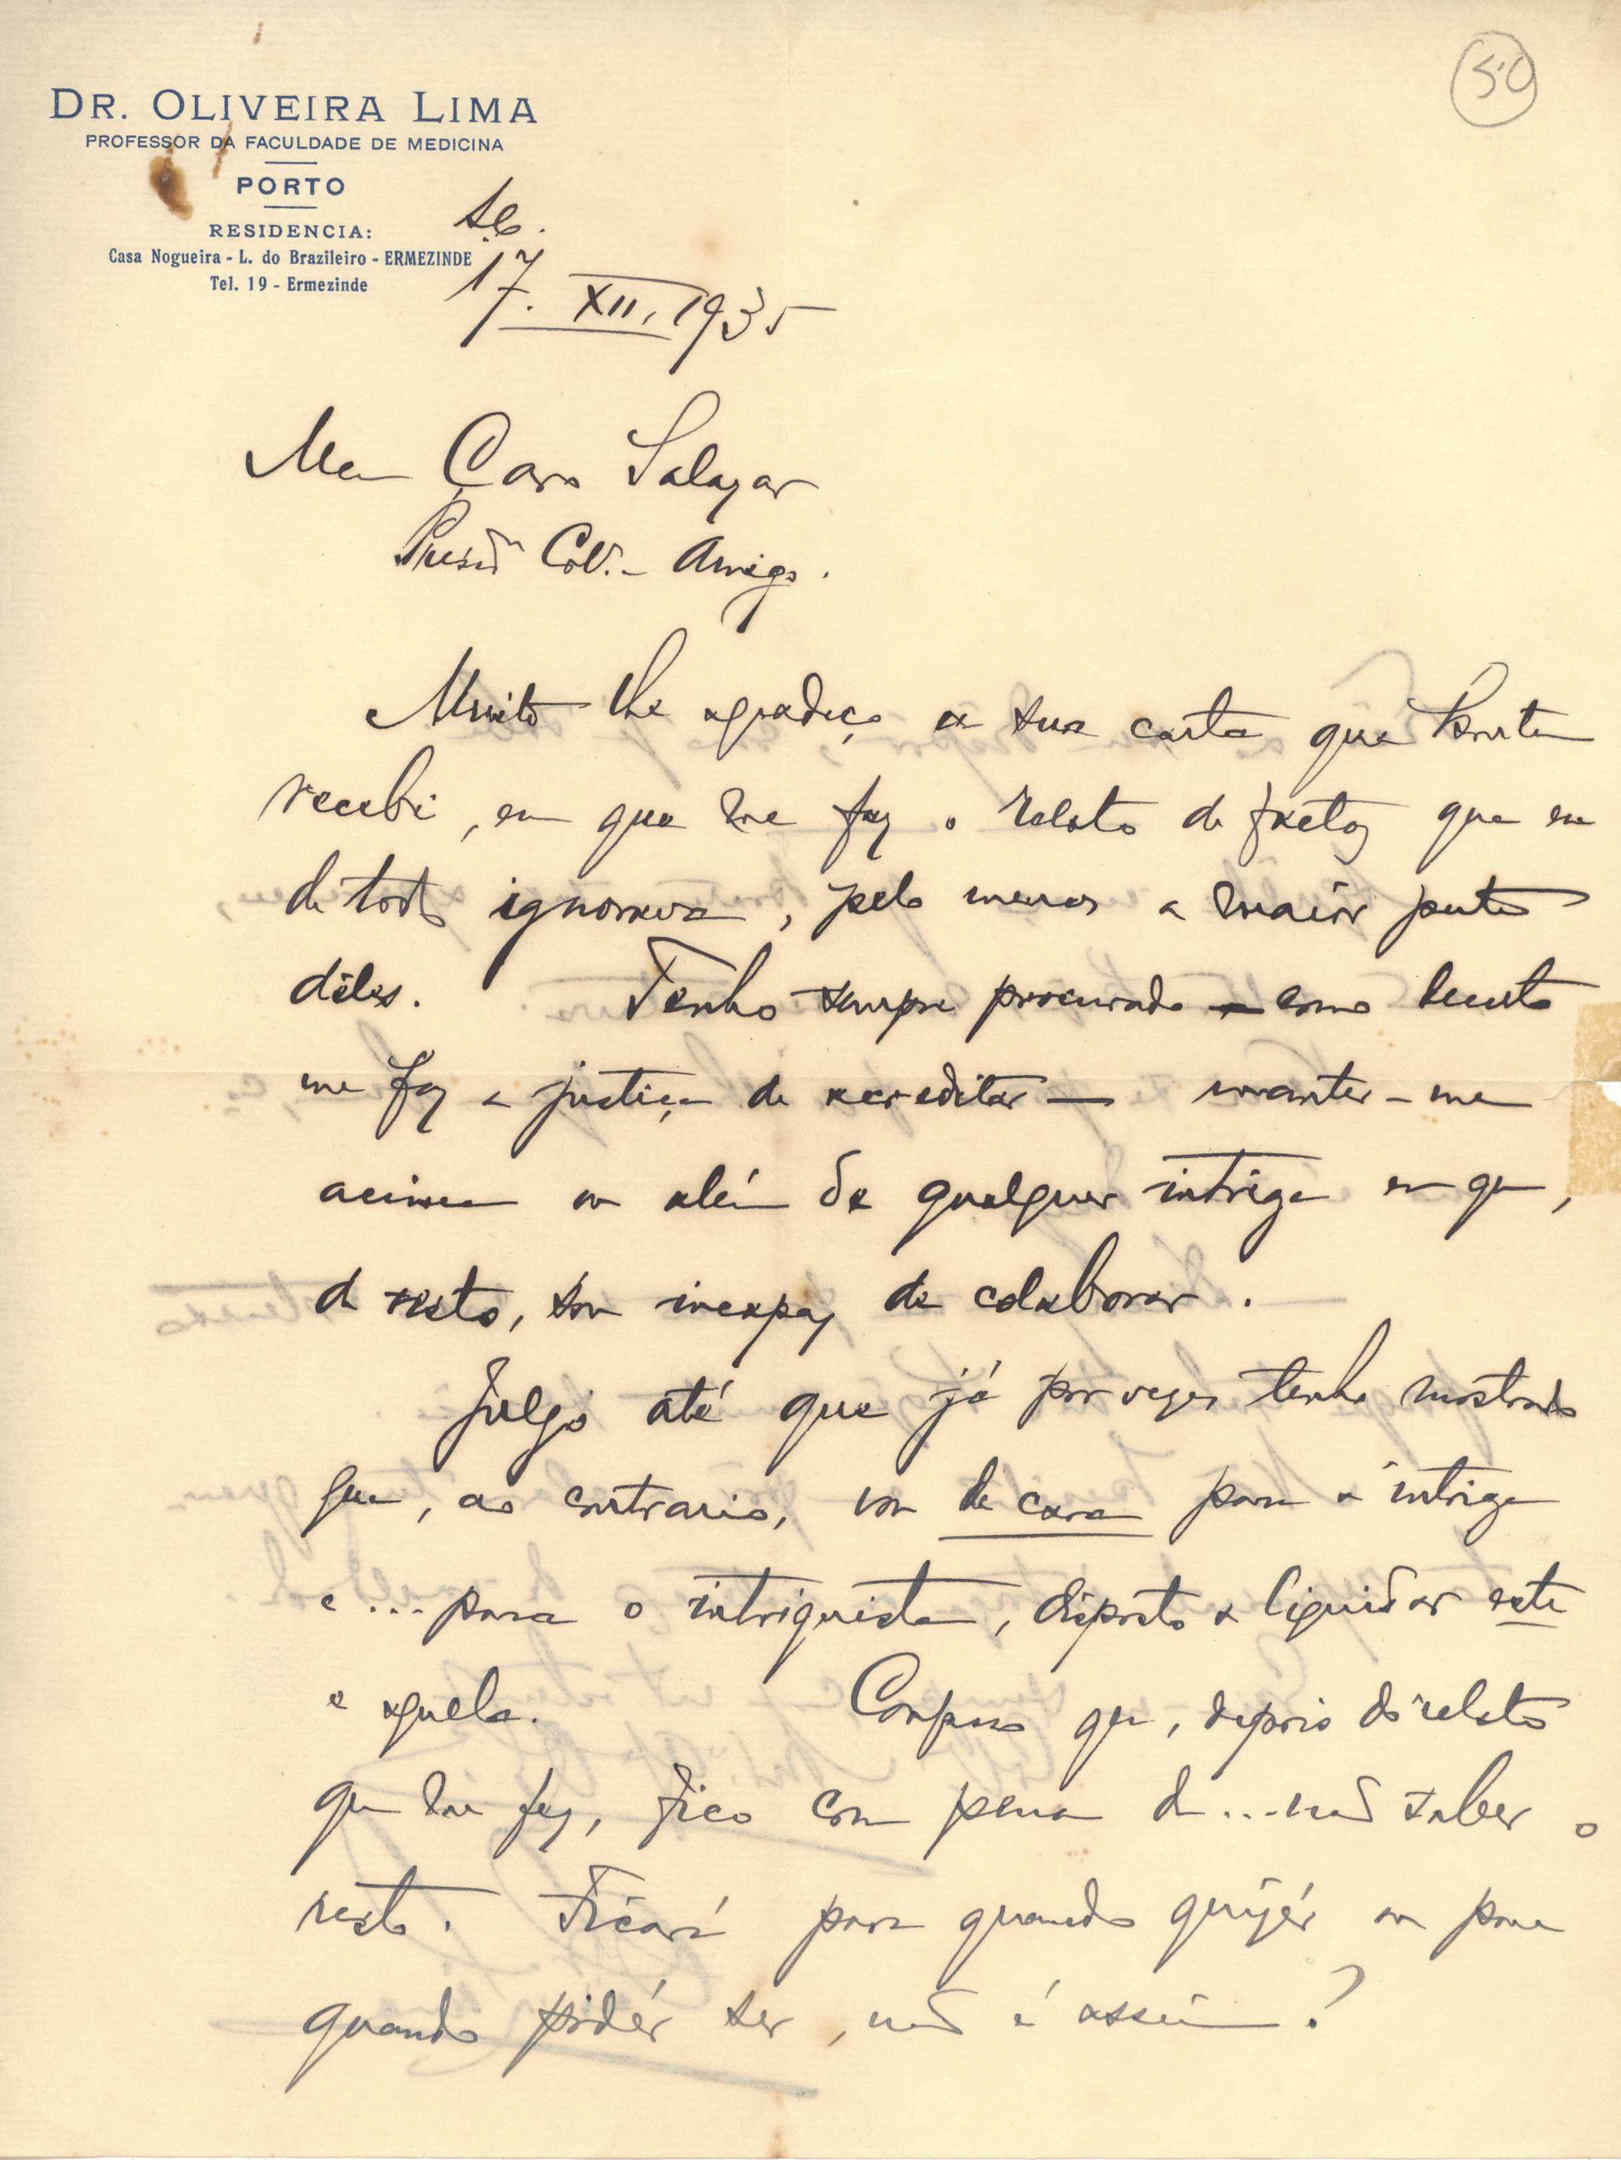 50
DR. OLIVEIRA LIMA
PROFESSOR DA FACULDADE DE MEDICINA
PORTO
RESIDENCIA:
Casa Nogueira - L. do Brazileiro - ERMEZINDE
Tel. 19 - Ermezinde
17. XII. 1935
Meu Caro Salazar
Col. - Amigo.
Muito lhe agradeço a sua carta que hontem
recebi, em que me faz o relato de factos que eu
de todo ignorava, pelo menos a maiór parte
dêles. Tenho sempre procurado — como decerto
me faz a justiça de acreditar — manter-me
acima ou além de qualquer intriga em que,
de resto, sou incapaz de colaborar.
Julgo até que já por vezes tenho mostrado
que, ao contrario, vou de cara para a intriga
e ... para o intriguista, disposto a liquidar este
e aquela. Confesso que, depois do relato
que me fez, fico com pena de ... não saber o
resto. Ficará para quando quizér ou para
quando podér ser, não é assim?